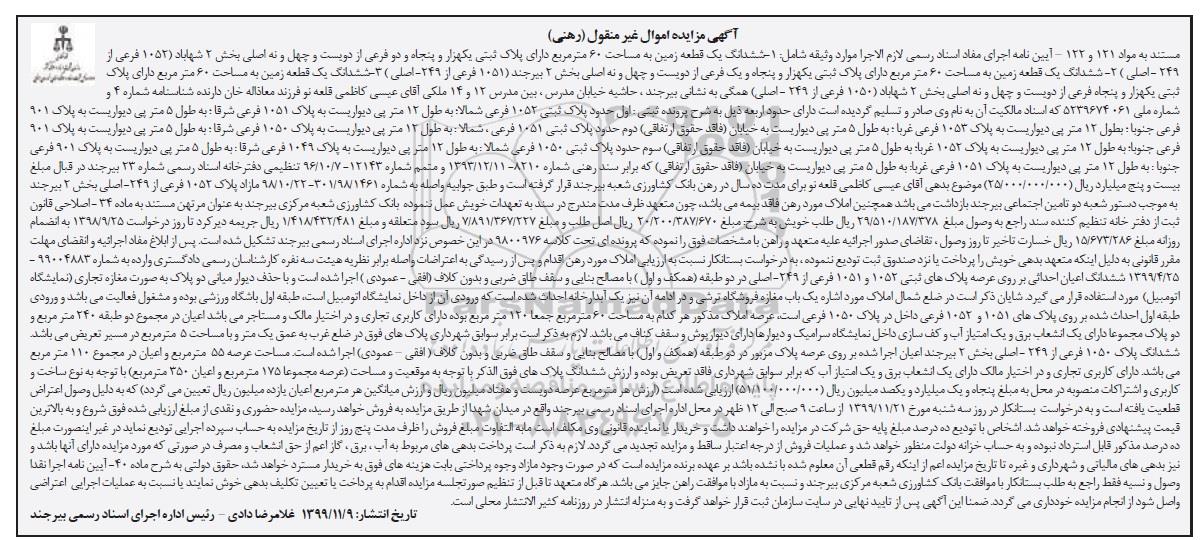 آگهی مزایده اموال غیر منقول (رهنی)
مستند به مواد ۱۲۱ و ۱۲۲ – آیین نامه اجرای مفاد اسناد رسمی لازم الاجرا موارد وثیقه شامل: ۱-ششدانگ یک قطعه زمین به مساحت ۶۰ مترمربع دارای پلاک ثبتی یکهزار و پنجاه و دو فرعی از دویست و چهل و نه اصلی بخش ۲ شهاباد (۱۰۵۲ فرعی از
۲۴۹ - اصلی) ۲- ششدانگ یک قطعه زمین به مساحت ۶۰ متر مربع دارای پلاک ثبتی یکهزار و پنجاه و یک فرعی از دویست و چهل و نه اصلی بخش ۲ بیرجند (۱۰۵۱ فرعی از ۲۴۹-اصلی) ۳-ششدانگ یک قطعه زمین به مساحت ۶۰ متر مربع دارای پلاک
ثبتی یکهزار و پنجاه فرعی از دویست و چهل و نه اصلی بخش ۲ شهاباد (۱۰۵۰ فرعی از ۲۴۹ - اصلی) همگی به نشانی بیرجند ، حاشیه خیابان مدرس ، بین مدرس ۱۲ و ۱۴ ملکی آقای عیسی کاظمی قلعه نو فرزند معاذاله خان دارنده شناسنامه شماره ۴ و
شماره ملی ۵۲۳۹۶۷۴۰۶۱ که اسناد مالکیت آن به نام وی صادر و تسلیم گردیده است دارای حدود اربعه ذیل به شرح پرونده ثبتی : اول حدود پلاک ثبتی ۱۰۵۲ فرعی شمالا: به طول ۱۲ متر پی دیواریست به پلاک ۱۰۵۱ فرعی شرقا : به طول ۵ متر پی دیواریست به پلاک ۹۰۱
فرعی جنوبا : بطول ۱۲ متر پی دیواریست به پلاک ۱۰۵۳ فرعی غربا : به طول ۵ متر پی دیواریست به خیابان (فاقد حقوق ارتفاقی) دوم حدود پلاک ثبتی ۱۰۵۱ فرعی ، شمالا : به طول ۱۲ متر پی دیواریست به پلاک ۱۰۵۰ فرعی شرقا : به طول ۵ متر پی دیواریست به پلاک ۹۰۱
فرعی جنوبا: به طول ۱۲ متر پی دیواریست به پلاک ۱۰۵۲ غربا: به طول ۵ متر پی دیواریست به خیابان (فاقد حقوق ارتفاقی) سوم حدود پلاک ثبتی ۱۰۵۰ فرعی شمالا: به طول ۱۲ متر پی دیواریست به پلاک ۱۰۴۹ فرعی شرقا: به طول ۵ متر پی دیواریست به پلاک ۹۰۱ فرعی
جنوبا : به طول ۱۲ متر پی دیواریست به پلاک ۱۰۵۱ فرعی غربا: به طول ۵ متر پی دیواریست به خیابان (فاقد حقوق ارتفاقی) که برابر سند رهنی شماره ۸۲۱۰-۱۳۹۳/۱۲/۱۱ و متمم شماره ۱۲۱۴۳-۹۶/۱۰/۷ تنظیمی دفترخانه اسناد رسمی شماره ۲۳ بیرجند در قبال مبلغ
بیست و پنج میلیارد ریال (۲۵/۰۰۰/۰۰۰/۰۰۰) موضوع بدهی آقای عیسی کاظمی قلعه نو برای مدت ده سال در رهن بانک کشاورزی شعبه بیرجند قرار گرفته است و طبق جوابیه واصله به شماره ۳۰۱/۹۸/۱۴۶۱-۹۸/۱۰/۲۲ مازاد پلاک ۱۰۵۲ فرعی از ۲۴۹-اصلی بخش ۲ بیرجند
به موجب دستور شعبه دو تامین اجتماعی بیرجند بازداشت می باشد همچنین املاک مورد رهن فاقد بیمه می باشد، چون متعهد ظرف مدت مندرج در سند به تعهدات خویش عمل ننموده بانک کشاورزی شعبه مرکزی بیرجند به عنوان مرتهن مستند به ماده ۳۴- اصلاحی قانون
ثبت از دفتر خانه تنظیم کننده سند راجع به وصول مبلغ ۲۹/۵۱۰/۱۸۷/۳۷۸ ریال طلب خویش به شرح: مبلغ ۲۰/۲۰۰/۳۸۷/۶۷۰ ریال اصل طلب و مبلغ ۷/۸۹۱/۳۶۷/۲۲۷ ریال سود متعلقه و مبلغ ۱/۴۱۸/۴۳۲/۴۸۱ ریال جریمه دیرکرد تا روز درخواست ۱۳۹۸/۹/۲۵ به انضمام
روزانه مبلغ ۱۵/۶۷۳/۲۸۶ ریال خسارت تاخیر تا روز وصول ، تقاضای صدور اجرائیه علیه متعهد و راهن با مشخصات فوق را نموده که پرونده ای تحت کلاسه ۹۸۰۰۹۷۶ در این خصوص نزد اداره اجرای اسناد رسمی بیرجند تشکیل شده است. پس از ابلاغ مفاد اجرائیه و انقضای مهلت
مقرر قانونی به دلیل اینکه متعهد بدهی خویش را پرداخت یا نزد صندوق ثبت تودیع ننموده ، به درخواست بستانکار نسبت به ارزیابی املاک مورد رهن اقدام و پس از رسیدگی به اعتراضات واصله برابر نظریه هیئت سه نفره کارشناسان رسمی دادگستری وارده به شماره ۹۹۰۰۴۸۸۳ -
۱۳۹۹/۴/۲۵ ششدانگ اعیان احداثی بر روی عرصه پلاک های ثبتی ۱۰۵۲ و ۱۰۵۱ فرعی از ۲۴۹-اصلی در دو طبقه (همکف و اول) با مصالح بنایی و سقف طاق ضربی و بدون کلاف (افقی –عمودی) اجرا شده است و با حذف دیوار میانی دو پلاک به صورت مغازه تجاری (نمایشگاه
اتومبیل) مورد استفاده قرار می گیرد. شایان ذکر است در ضلع شمال املاک مورد اشاره یک باب مغازه فروشگاه ترشی و در ادامه آن نیز یک آبدارخانه احداث شده است که ورودی آن از داخل نمایشگاه اتومبیل است، طبقه اول باشگاه ورزشی بوده و مشغول فعالیت می باشد و ورودی
طبقه اول احداث شده بر روی پلاک های ۱۰۵۱ و ۱۰۵۲ فرعی داخل در پلاک ۱۰۵۰ فرعی است، عرصه املاک مذکور هر کدام به مساحت ۶۰ مترمربع جمعا ۱۲۰ متر مربع بوده دارای کاربری تجاری و در اختیار مالک و مستاجر می باشد اعیان در مجموع دو طبقه ۲۴۰ متر مربع و
دو پلاک مجموعا دارای یک انشعاب برق و یک امتیاز آب و کف سازی داخل نمایشگاه سرامیک و دیوارها دارای دیوارپوش و سقف کناف می باشد. لازم به ذکر است برابر سوابق شهرداری پلاک های فوق در ضلع غرب به عمق یک متر و با مساحت ۵ مترمربع در مسیر تعریض می باشد.
ششدانگ پلاک ۱۰۵۰ فرعی از ۲۴۹ - اصلی بخش ۲ بیرجند اعیان اجرا شده بر روی عرصه پلاک مزبور در دو طبقه (همکف و اول) با مصالح بنایی و سقف طاق ضربی و بدون کلاف (افقی – عمودی) اجرا شده است. مساحت عرصه ۵۵ مترمربع و اعیان در مجموع ۱۱۰ متر مربع
می باشد. دارای کاربری تجاری و در اختیار مالک دارای یک انشعاب برق و یک امتیاز آب که برابر سوابق شهرداری فاقد تعریض بوده و ارزش ششدانگ پلاک های فوق الذکر با توجه به موقعیت و مساحت (عرصه مجموعا ۱۷۵ مترمربع و اعیان ۳۵۰ مترمربع) با توجه به نوع ساخت و
کاربری و اشتراکات منصوبه در محل به مبلغ پنجاه و یک میلیارد و یکصد میلیون ریال (۵۱/۱۰۰/۰۰۰/۰۰۰) ارزیابی شده است (ارزش هر متر مربع عرصه دویست و هفتاد میلیون ریال و ارزش میانگین هر مترمربع اعیان یازده میلیون ریال تعیین می گردد) که به دلیل وصول اعتراض
قطعیت یافته است و به درخواست بستانکار در روز سه شنبه مورخ ۱۳۹۹/۱۱/۲۱ از ساعت ۹ صبح الی ۱۲ ظهر در محل اداره اجرای اسناد رسمی بیرجند واقع در میدان شهدا از طریق مزایده به فروش خواهد رسید، مزایده حضوری و نقدی از مبلغ ارزیابی شده فوق شروع و به بالاترین
قیمت پیشنهادی فروخته خواهد شد. اشخاص با تودیع ده درصد مبلغ پایه حق شرکت در مزایده را خواهند داشت و خریدار یا نماینده قانونی وی مکلف است مابه التفاوت مبلغ فروش را ظرف مدت پنج روز از تاریخ مزایده به حساب سپرده اجرایی تودیع نماید در غیر اینصورت مبلغ
ده درصد مذکور قابل استرداد نبوده و به حساب خزانه دولت منظور خواهد شد و عملیات فروش از درجه اعتبار ساقط و مزایده تجدید می گردد. لازم به ذکر است پرداخت بدهی های مربوط به آب ، برق ، گاز اعم از حق انشعاب و مصرف در صورتی که مورد مزایده دارای آنها باشد و
نیز بدهی های مالیاتی و شهرداری و غیره تا تاریخ مزایده اعم از اینکه رقم قطعی آن معلوم شده یا نشده باشد بر عهده برنده مزایده است که در صورت وجود مازاد وجوه پرداختی بابت هزینه های فوق به خریدار مسترد خواهد شد، حقوق دولتی به شرح ماده ۴۰- آیین نامه اجرا نقدا
وصول و نسیه فقط راجع به طلب بستانکار با موافقت بانک کشاورزی شعبه مرکزی بیرجند و نسبت به مازاد با موافقت راهن جایز می باشد. هر گاه متعهد تا قبل از تنظیم صورتجلسه مزایده اقدام به پرداخت یا تعیین تکلیف بدهی خوش نمایند یا نسبت به عملیات اجرایی اعتراضی
واصل شود از انجام مزایده خودداری می گردد. ضمنا این آگهی پس از تایید نهایی در سایت سازمان ثبت قرار خواهد گرفت و به منزله انتشار در روزنامه کثیر الانتشار محلی است.
تاریخ انتشار: ۱۳۹۹/۱۱/۹ غلامرضا دادی – رئیس اداره اجرای اسناد رسمی بیرجند